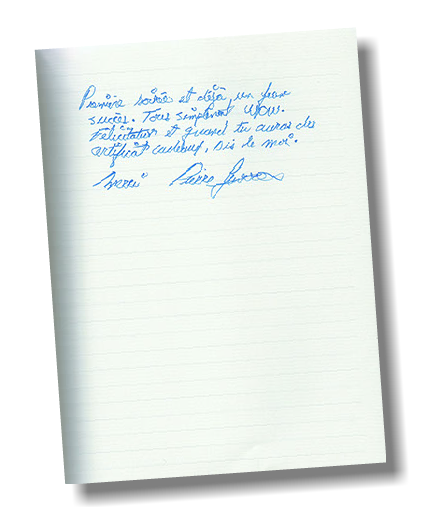 Première soirée et déjà un franc
succès. Tous simplement WOW.
Félicitation et quand tu auras des
certificat cadeaux, Dis le moi.
Merci Pierre